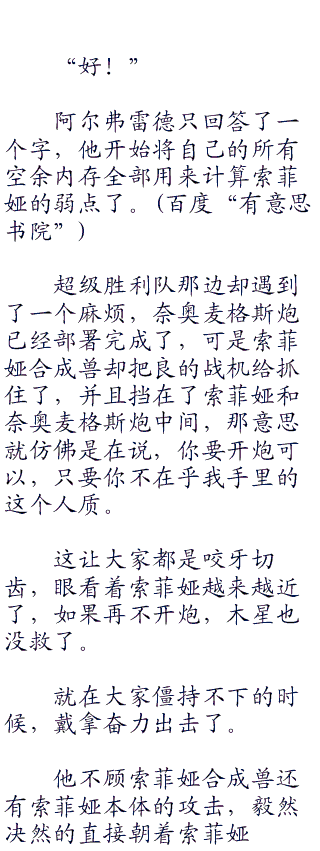 “好！”
阿尔弗雷德只回答了一
个字，他开始将自己的所有
空余内存全部用来计算索菲
娅的弱点了。(百度“有意思
书院”)
超级胜利队那边却遇到
了一个麻烦，奈奥麦格斯炮
已经部署完成了，可是索菲
娅合成兽却把良的战机给抓
住了，并且挡在了索菲娅和
奈奥麦格斯炮中间，那意思
就仿佛是在说，你要开炮可
以，只要你不在乎我手里的
这个人质。
这让大家都是咬牙切
齿，眼看着索菲娅越来越近
了，如果再不开炮，木星也
没救了。
就在大家僵持不下的时
候，戴拿奋力出击了。
他不顾索菲娅合成兽还
有索菲娅本体的攻击，毅然
决然的直接朝着索菲娅